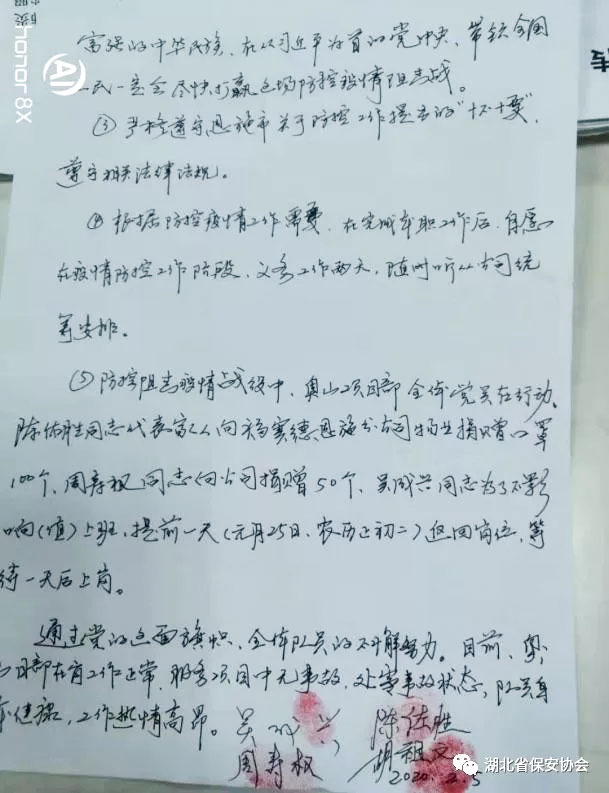 富强的中华民族,在以习近平为首的党中央,带领全国
人民一定会尽快打赢这场防控疫情阻击战。
③严格遵守恩施市关于防控工作提出的"十不十要",
遵守相关法律法规。
④根据防控疫情工作需要,在完成本职工作后,自愿
在疫情防控工作阶段,义务工作两天,随时听从公司统
筹安排。
⑤防控阻击疫情战役中,奥山项目部全体党员在行动。
陈佑胜同志代表富人向瑞赛德恩施分公司物业捐赠口罩
100个、周寿权同志向公司捐赠50个、吴成兴同志为了不影
响(值)上班,提前一天(元月25日,农历正初二)返回岗位,等
待一天后上岗。
通过党的这面旗帜,全体队员的不懈努力。目前、奥山
项目部在岗工作正常,服务项目中无事故,处零事故状态,队员身
体健康,工作热情高昂。
吴成兴 陈佑胜
周寿权 胡祖文
2020.2.5
honor 8X
AI
湖北省保安协会